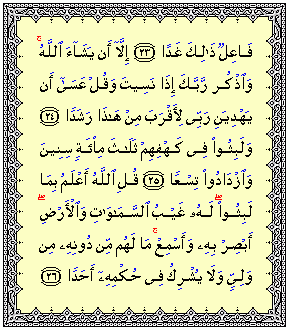 فَاعِلٌ ذَٰلِكَ غَدًا ﴿٢٣﴾ إِلَّآ أَن يَشَآءَ ٱللَّهُ ۚ
وَٱذْكُر رَّبَّكَ إِذَا نَسِيتَ وَقُلْ عَسَىٰٓ أَن
يَهْدِيَنِ رَبِّى لِأَقْرَبَ مِنْ هَـٰذَا رَشَدًا ﴿٢٤﴾
وَلَبِثُوا۟ فِى كَهْفِهِمْ ثَلَـٰثَ مِا۟ئَةٍ سِنِينَ
وَٱزْدَادُوا۟ تِسْعًا ﴿٢٥﴾ قُلِ ٱللَّهُ أَعْلَمُ بِمَا
لَبِثُوا۟ ۖ لَهُۥ غَيْبُ ٱلسَّمَـٰوَٰتِ وَٱلْأَرْضِ ۖ
أَبْصِرْ بِهِۦ وَأَسْمِعْ ۚ مَا لَهُم مِّن دُونِهِۦ مِن
وَلِىٍّ وَلَا يُشْرِكُ فِى حُكْمِهِۦٓ أَحَدًا ﴿٢٦﴾